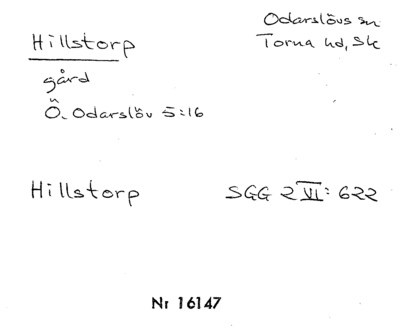 Hillstorp
Odarslövs sn
Torna hd, Sk
gård
Ö. Odarslöv 5:16
Hillstorp SGG 2 VI: 622
Nr 16147